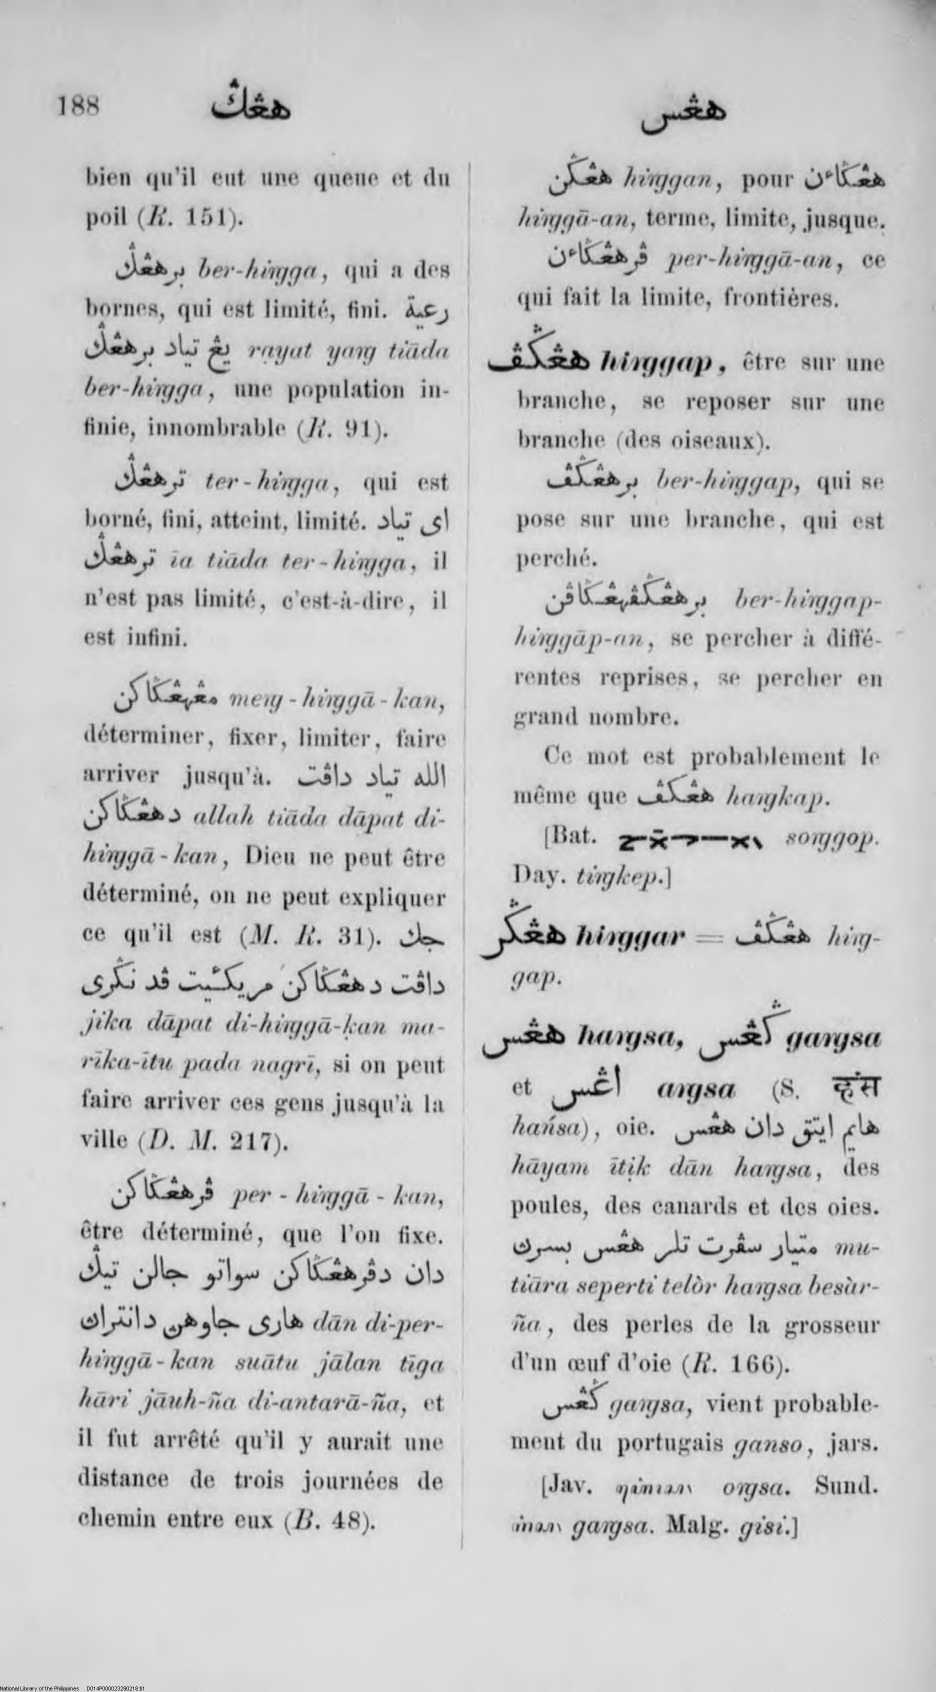 188 هڠݢ هڠس
bien qu'il eut une queue et du
poil (R. 151).
برهڠݢ ber-hiŋga, qui a des
bornes, qui est limité, fini. رعية
يڠ تياد برهڠݢ rayat yaŋ tiāda
ber-hiŋga, une population in-
finie, innombrable (R. 91).
ترهڠݢ ter-hiŋga, qui est
borné, fini, atteint, limité. اى تياد
ترهڠݢ īa tiāda ter-hiŋga, il
n'est pas limité, c'est-à-dire, il
est infini.
مڠهڠݢاكن meŋ-hiŋgā-kan,
déterminer, fixer, limiter, faire
arriver jusqu'à. الله تياد داڤت
دهڠݢاكن allah tiāda dāpat di-
hiŋgā-kan, Dieu ne peut être
déterminé, on ne peut expliquer
ce qu'il est (M. R. 31). جك
داڤت دهڠݢاكن مريكئيت ڤد نݢرى
jika dāpat di-hiŋgā-kan ma-
rīka-ītu pada nagrī, si on peut
faire arriver ces gens jusqu'à la
ville (D. M. 217).
ڤرهڠݢاكن per-hiŋgā-kan,
être déterminé, que l'on fixe.
دان دڤرهڠݢاكن سواتو جالن تيݢ
هارى جاوهن دانتراڽ dān di-per-
hiŋgā-kan suātu jālan tīga
hāri jāuh-ña di-antarā-ña, et
il fut arrêté qu'il y aurait une
distance de trois journées de
chemin entre eux (B. 48).
هڠݢن hiŋgan, pour هڠݢاءن
hiŋgā-an, terme, limite, jusque.
ڤرهڠݢاءن per-hiŋgā-an, ce
qui fait la limite, frontières.
هڠݢڤ hiŋgap, être sur une
branche, se reposer sur une
branche (des oiseaux).
برهڠݢڤ ber-hiŋgap, qui se
pose sur une branche, qui est
perché.
برهڠݢڤهڠݢاڤن ber-hiŋgap-
hiŋgāp-an, se percher à diffé-
rentes reprises, se percher en
grand nombre.
Ce mot est probablement le
même que هڠكڤ haŋkap.
[Bat. soŋgop.
Day. tiŋkep.]
هڠݢر hiŋgar = هڠݢڤ hiŋ-
gap.
هڠس haŋsa, ݢڠس gaŋsa
et اڠس aŋsa (S. हंस
hańsa), oie. هايم ايتق دان هڠس
hāyam ītik dān haŋsa, des
poules, des canards et des oies.
متيار سڤرت تلر هڠس بسرڽ mu-
tiāra seperti telòr haŋsa besàr-
ña, des perles de la grosseur
d'un œuf d'oie (R. 166).
ݢڠس gaŋsa, vient probable-
ment du portugais ganso, jars.
[Jav. oŋsa. Sund.
gaŋsa. Malg. gisi.]
National Library of the Philippines